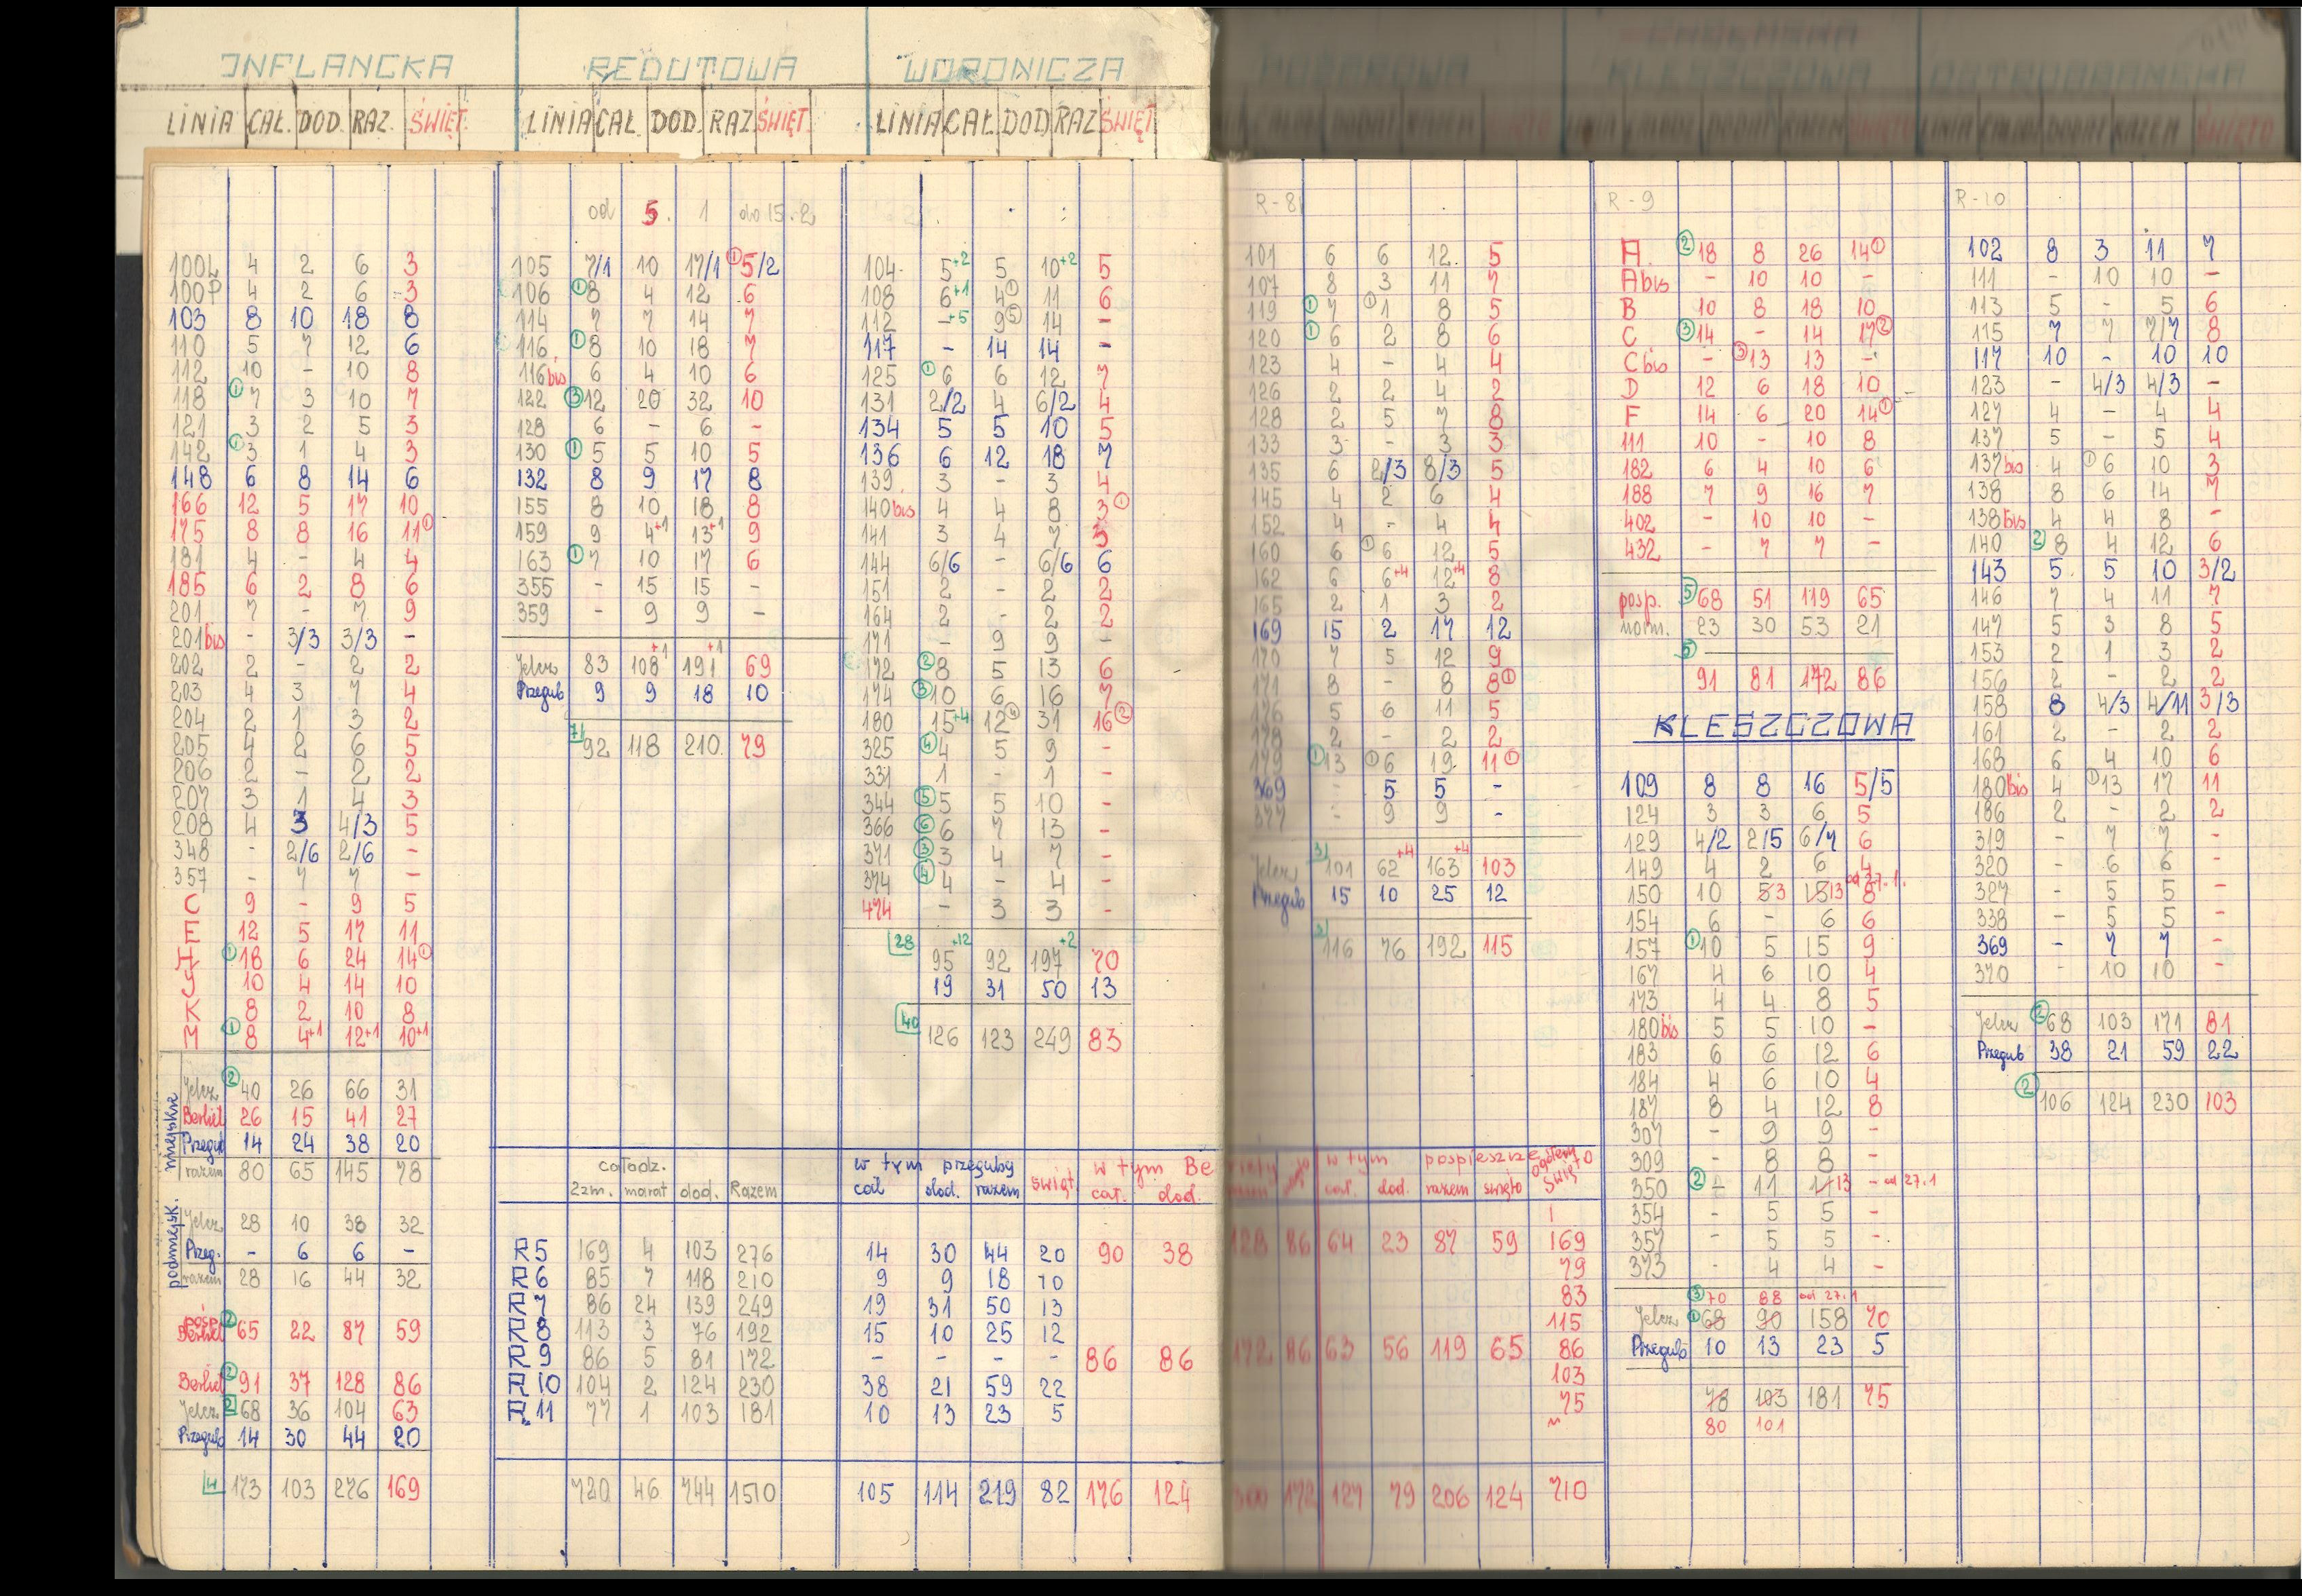 INFLANCKA
LINIA CAŁ. DOD. RAZ. ŚWIĘT.
100L 4 2 6 3
100P 4 2 6 3
103 8 10 18 8
110 5 7 12 6
112 10 - 10 8
118 ① 7 3 10 7
121 3 2 5 3
142 ① 3 1 4 3
148 6 8 14 6
166 12 5 17 10
175 8 8 16 11①
181 4 - 4 4
185 6 2 8 6
201 7 - 7 9
201bis - 3/3 3/3 -
202 2 - 2 2
203 4 3 7 4
204 2 1 3 2
205 4 2 6 5
206 2 - 2 2
207 3 1 4 3
208 4 3 4/3 5
348 - 2/6 2/6 -
357 - 7 7 -
C 9 - 9 5
E 12 5 17 11
H ① 18 6 24 14①
J 10 4 14 10
K 8 2 10 8
M ① 8 4+1 12+1 10+1
miejskie
Jelcz ② 40 26 66 31
Berliet 26 15 41 27
Przegub 14 24 38 20
razem 80 65 145 78
podmiejsk.
Jelcz 28 10 38 32
Przeg. - 6 6 -
razem 28 16 44 32
posp. Berliet ② 65 22 87 59
Berliet ② 91 37 128 86
Jelcz 2 68 36 104 63
Przegub 14 30 44 20
4 173 103 276 169
REDUTOWA
LINIA CAŁ DOD. RAZ ŚWIĘT.
od 5. 1 do 15. 2
105 7/1 10 17/1 ① 5/2
106 ① 8 4 12 6
114 7 7 14 7
116 ① 8 10 18 7
116bis 6 4 10 6
122 ③ 12 20 32 10
128 6 - 6 -
130 ① 5 5 10 5
132 8 9 17 8
155 8 10 18 8
159 9 4+1 13+1 9
163 ① 7 10 17 6
355 - 15 15 -
359 - 9 9 -
Jelcz 83 108+1 191+1 69
Przegub 9 9 18 10
7 92 118 210 79
WORONICZA
LINIA CAŁ DOD RAZ ŚWIĘT
104 5+2 5 10+2 5
108 6+1 4① 11 6
112 -+5 9⑤ 14 -
117 - 14 14 -
125 ① 6 6 12 7
131 2/2 4 6/2 4
134 5 5 10 5
136 6 12 18 7
139 3 - 3 4
140bis 4 4 8 3①
141 3 4 7 3
144 6/6 - 6/6 6
151 2 - 2 2
164 2 - 2 2
171 - 9 9 -
172 ② 8 5 13 6
174 ③ 10 6 16 7
180 15+4 12④ 31 16②
325 ④ 4 5 9 -
331 1 - 1 -
344 ⑤ 5 5 10 -
366 ⑥ 6 7 13 -
371 ③ 3 4 7 -
374 ④ 4 - 4 -
474 - 3 3 -
28 95+12 92 197+2 70
19 31 50 13
40 126 123 249 83
całodz. w tym przeguby świąt w tym Be
2zm. marat dod. Razem cał dod. razem cał. dod.
R5 169 4 103 276 14 30 44 20 90 38
R6 85 7 118 210 9 9 18 10
R7 86 24 139 249 19 31 50 13
R8 113 3 76 192 15 10 25 12
R9 86 5 81 172 - - - - 86 86
R10 104 2 124 230 38 21 59 22
R11 77 1 103 181 10 13 23 5
720 46 744 1510 105 114 219 82 176 124
R-8
101 6 6 12. 5
107 8 3 11 7
119 ① 7 ① 1 8 5
120 ① 6 2 8 6
123 4 - 4 4
126 2 2 4 2
128 2 5 7 8
133 3 - 3 3
135 6 2/3 8/3 5
145 4 2 6 4
152 4 - 4 4
160 6 ① 6 12 5
162 6 6+4 12+4 8
165 2 1 3 2
169 15 2 17 12
170 7 5 12 9
171 8 - 8 8①
176 5 6 11 5
178 2 - 2 2
179 ① 13 ① 6 19 11①
369 - 5 5 -
377 - 9 9 -
Jelcz 3 101 62+4 163+4 103
Przegub 15 10 25 12
116 76 192 115
w tym pospieszne ogółem święto
cał. dod. razem święto
128 86 64 23 87 59 169
79
83
115
172 86 63 56 119 65 86
103
75
300 172 127 79 206 124 710
R-9
A ② 18 8 26 14①
A bis - 10 10 -
B 10 8 18 10
C ③ 14 - 14 17②
C bis - ③ 13 13 -
D 12 6 18 10
F 14 6 20 14①
111 10 - 10 8
182 6 4 10 6
188 7 9 16 7
402 - 10 10 -
432 - 7 7 -
posp. ⑤ 68 51 119 65
norm. 23 30 53 21
⑤ 91 81 172 86
KLESZCZOWA
109 8 8 16 5/5
124 3 3 6 5
129 4/2 2/5 6/7 6
149 4 2 6 4
150 10 53 1513 8 od 27.1.
154 6 - 6 6
157 ① 10 5 15 9
167 4 6 10 4
173 4 4 8 5
180bis 5 5 10 -
183 6 6 12 6
184 4 6 10 4
187 8 4 12 8
307 - 9 9 -
309 - 8 8 -
350 ② - 11 1113 - od 27.1
354 - 5 5 -
357 - 5 5 -
373 - 4 4 -
③ 70 88 od 27.1
Jelcz ① 68 90 158 70
Przegub 10 13 23 5
78 103 181 75
80 101
R-10
102 8 3 11 7
111 - 10 10 -
113 5 - 5 6
115 7 7 7/7 8
117 10 - 10 10
123 - 4/3 4/3 -
127 4 - 4 4
137 5 - 5 4
137bis 4 ① 6 10 3
138 8 6 14 7
138bis 4 4 8 -
140 ② 8 4 12 6
143 5 5 10 3/2
146 7 4 11 7
147 5 3 8 5
153 2 1 3 2
156 2 - 2 2
158 8 4/3 4/11 3/3
161 2 - 2 2
168 6 4 10 6
180bis 4 ① 13 17 11
186 2 - 2 2
319 - 7 7 -
320 - 6 6 -
327 - 5 5 -
338 - 5 5 -
369 - 7 7 -
370 - 10 10 -
Jelcz ② 68 103 171 81
Przegub 38 21 59 22
② 106 124 230 103